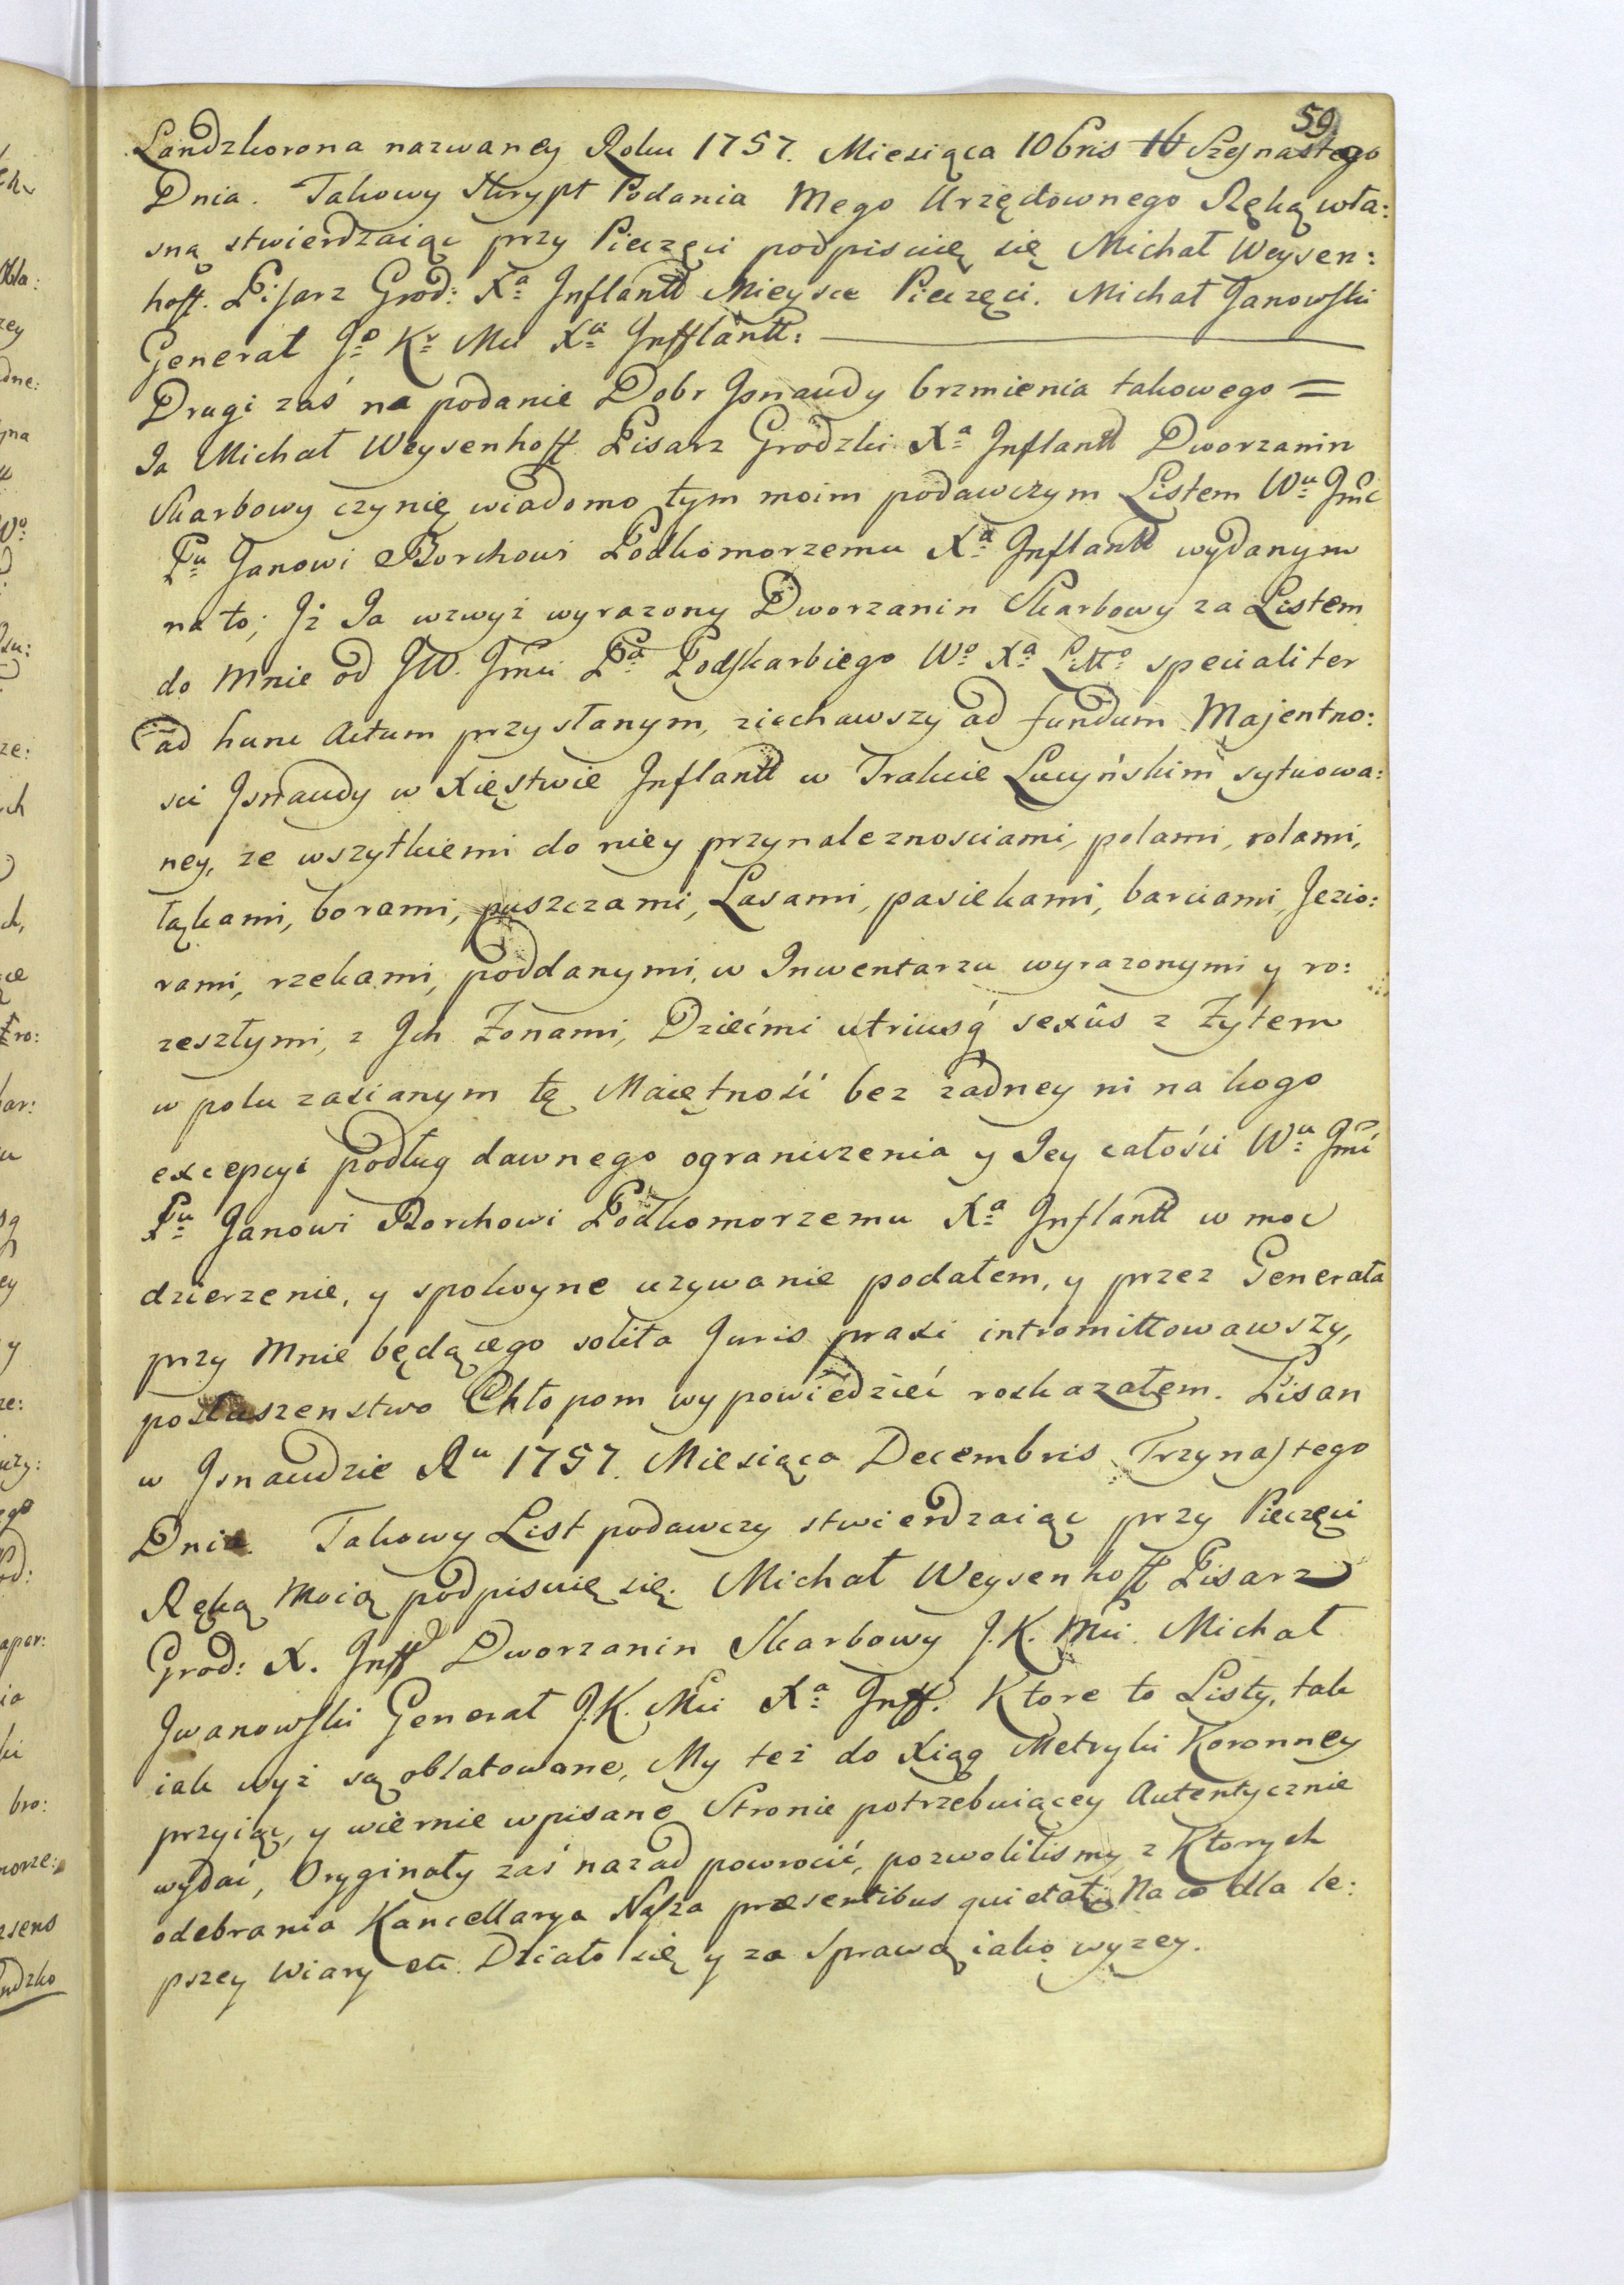 59
Landzkorona nazwaney Roku 1757. Miesiąca 10bris 16 Szesnastego
Dnia. Takowy Skrypt Podania Mego Urzędownego Ręką wła:
sną stwierdzaiąc przy Pieczęci podpisuię się Michał Weysen:
hoff. Pisarz Grod: Xa Inflantt Mieysce Pieczęci. Michał Janowski
Generał Jo Kr Mci Xa Infflantt:
Drugi zaś na podanie Dobr Jsnaudy brzmienia takowego =
Ja Michał Weysenhoff Pisarz Grodzki Xa Inflantt Dworzanin
Skarbowy czynię wiadomo tym moim podawczym Listem Wu Jmć
Pu Janowi Borchowi Podkomorzemu Xa Inflantt wydanym
na to; Jż Ja wzwyż wyrazony Dworzanin Skarbowy za Listem
do Mnie od JW. Jmci Pa Podskarbiego Wo Xa Litto specialiter
ad hunc Actum przysłanym, ziechawszy ad fundum Majentno:
sci Jsnaudy w Xięstwie Inflantt w Trakcie Lucyńskim sytuowa:
ney, ze wszytkiemi do niey przynaleznosciami, polami, rolami,
łąkami, borami, puszczami, Lasami, pasiekami, barciami, Jezio:
rami, rzekami, poddanymi, w Inwentarzu wyrazonymi y ro:
zeszłymi, z Jch Żonami, Dziećmi utriusq́ sexûs z Żytem
w polu zasianym tę Maiętność bez żadney ni na kogo
excepcyi podług dawnego ograniczenia y Jey całości Wu Jmć
Pu Janowi Borchowi Podkomorzemu Xa Inflantt w moc
dzierzenie, y spokoyne uzywanie podałem, y przez Generała
przy Mnie będącego solita Juris praxi intromittowawszy,
posłuszenstwo Chłopom wypowiedzieć roskazałem. Pisan
w Jsnaudzie Ru 1757. Miesiąca Decembris Trzynastego
Dnia. Takowy List podawczy stwierdzaiąc przy Pieczęci
Ręką Moią podpisuię się. Michał Weysenhoff Pisarz
Grod: X. Inff Dworzanin Skarbowy J.K. Mci. Michał
Jwanowski Generał J.K. Mci Xa Inff. Ktore to Listy, tak
iak wyż są oblatowane, My też do Xiąg Metryki Koronney
przyiąc, y wiernie wpisane Stronie potrzebuiącey Autentycznie
wydać, Oryginały zaś nazad powrocić, pozwolilismy z Ktorych
odebrania Kancellarya Nasza præsentibus quietatur Na co dla le:
pszey Wiary etc. Działo się y za sprawą iako wyzey.